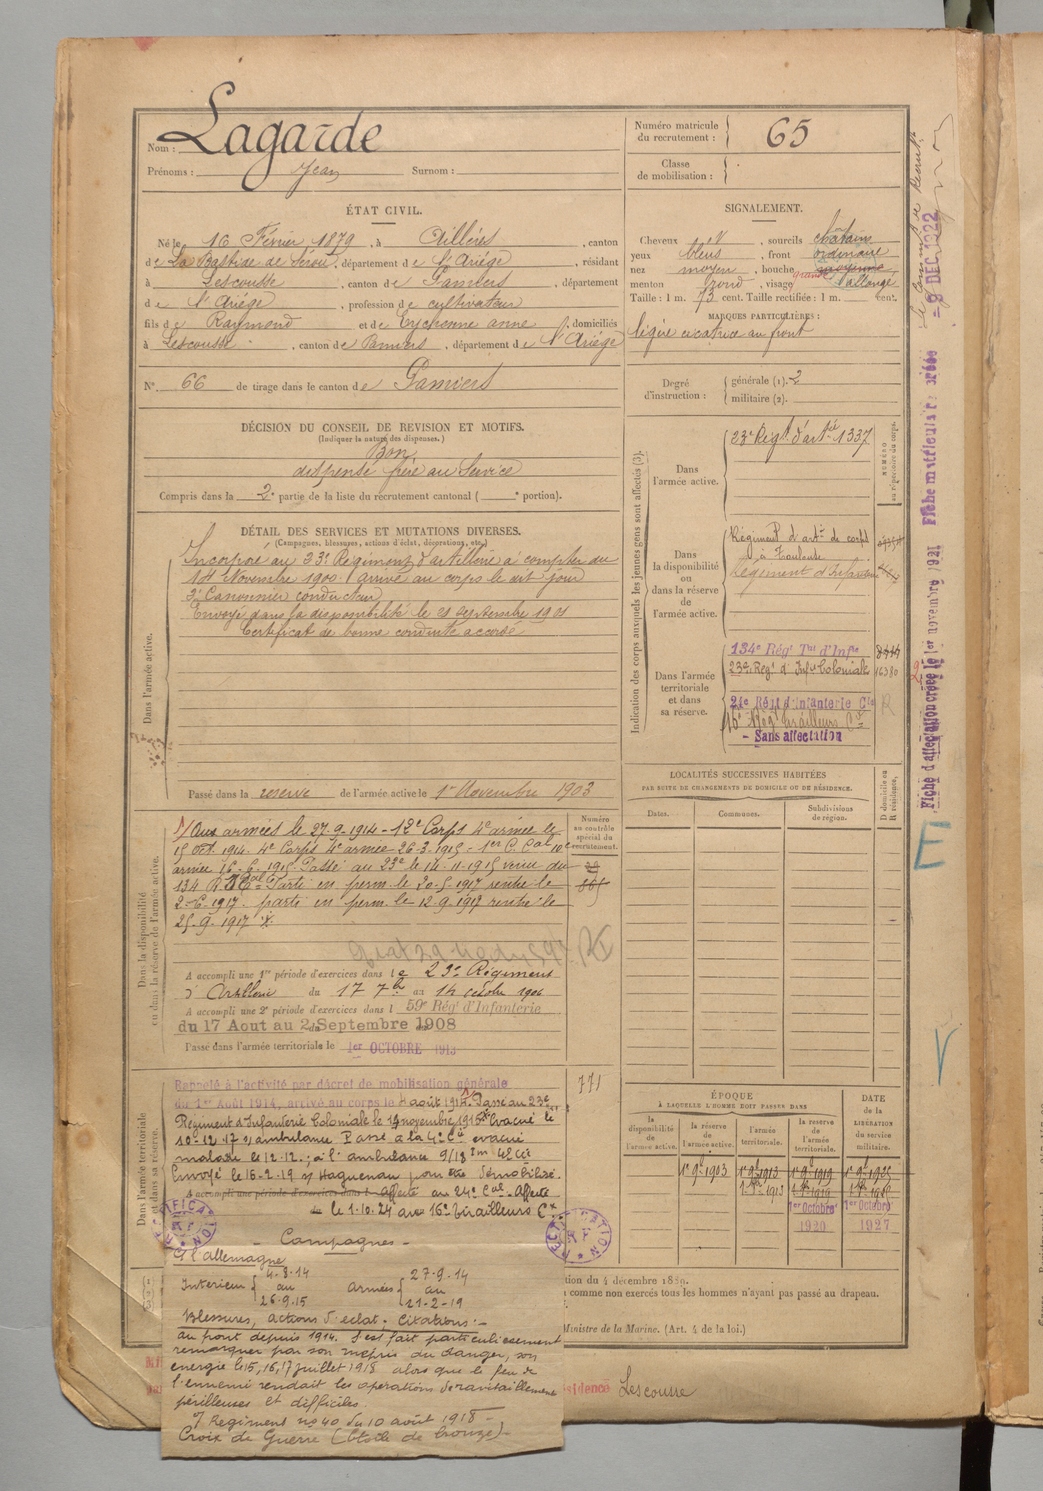 Nom : Lagarde
Prénoms : Jean Surnom :
Numéro matricule du recrutement : 65
Classe de mobilisation :
ÉTAT CIVIL.
Né le 16 Février 1879, à Aillères, canton
de La Bastide de Sérou, département de l'Ariége, résidant
à Lescousse, canton de Pamiers, département
de l'Ariége, profession de cultivateur
fils de Raymond et de Eychenne anne, domiciliés
à Lescousse, canton de Pamiers, département de l'Ariége
N° 66 de tirage dans le canton de Pamiers
SIGNALEMENT.
Cheveux N, sourcils châtain
yeux bleus, front ordinaire
nez moyen, bouche grande moyenne
menton rond, visage allongé
Taille : 1 m. 73 cent. Taille rectifiée : 1 m. cent.
MARQUES PARTICULIÈRES :
légère cicatrice au front
Degré d'instruction : générale (1). 2
militaire (2).
DÉCISION DU CONSEIL DE REVISION ET MOTIFS.
(Indiquer la nature des dispenses.)
Bon
dispensé frère au Service
Compris dans la 2e partie de la liste du recrutement cantonal ( e portion).
DÉTAIL DES SERVICES ET MUTATIONS DIVERSES.
(Campagnes, blessures, actions d'éclat, décorations, etc.)
Dans l'armée active.
Incorporé au 23e Régiment d'artillerie à compter du
14 Novembre 1900. arrivé au corps le dit jour
2e Canonnier conducteur
Envoyé dans la disponibilité le 21 septembre 1901
Certificat de bonne conduite accordé
Passé dans la reserve de l'armée active le 1er Novembre 1903
Indication des corps auxquels les jeunes gens sont affectés (3).
NUMÉRO au répertoire du corps.
Dans l'armée active.
23e Régt d'artie 1337
Dans la disponibilité ou dans la réserve de l'armée active.
Régiment d'artie de corps
à Toulouse
Régiment d'Infanterie
Dans l'armée territoriale et dans sa réserve.
134e Régt Tal d'Infie
23e Regt d'Infie Coloniale 16380
21e Régt d'Infanterie Cle
16e Régt Tirailleurs Cx
- Sans affectation
LOCALITÉS SUCCESSIVES HABITÉES
PAR SUITE DE CHANGEMENTS DE DOMICILE OU DE RÉSIDENCE.
Dates. Communes. Subdivisions de région. D domicile ou R résidence.
Dans la disponibilité ou dans la réserve de l'armée active.
Numéro au contrôle spécial du recrutement.
1/ Aux armées le 27.9.1914 - 12e Corps 4e armée le
15 oct. 1914. 4e Corps 4e armée 26.3.1915 - 1er C. Cal 10e
armée 16.6.1915 Passé au 23e le 14.11.1915 venu du
134 R. Parti en perm. le 20.5.1917 rentré le
2.6.1917. parti en perm. le 12.9.1917 rentré le
25.9.1917
A accompli une 1re période d'exercices dans le 23e Régiment
d'Artillerie du 17 7bre au 14 octobre 1906
A accompli une 2e période d'exercices dans l 59e Rég d'Infanterie
du 17 Aout au 2 Septembre 1908
Passé dans l'armée territoriale le 1er OCTOBRE 1913
Dans l'armée territoriale et dans sa réserve.
771
Rappelé à l'activité par décret de mobilisation générale
du 1er Août 1914, arrivé au corps le 4 août 1914. Passé au 23e
Régiment d'Infanterie Coloniale le 14 novembre 1915 Evacué le
10-12-17 s/ambulance Passé à la 4e Cie evacué
malade le 12.12. ; à l'ambulance 9/18
Envoyé le 16-2-19 s/ Haguenau pour être démobilisé.
A accompli une période d'exercices dans l Affecté au 24e Cal - Affecté
le 1.10.24 au 16e tirailleurs Cx
RECTIFICATION
RECTIFICATION
- Campagnes -
C l'allemagne
Intérieur { 4-8-14 au 26.9.15
armées { 27-9-14 au 21-2-19
Blessures, actions d'éclat, Citations :-
au front depuis 1914. S'est fait particulièrement
remarquer par son mépris du danger, son
energie le 15, 16, 17 juillet 1918 alors que le feu de
l'ennemi rendait les opérations de ravitaillement
périlleuses et difficiles.
o/ Regiment no 40 du 10 août 1918 -
Croix de Guerre (étoile de bronze)-
ÉPOQUE
À LAQUELLE L'HOMME DOIT PASSER DANS
la disponibilité de l'armée active. la réserve de l'armée active. l'armée territoriale. la réserve de l'armée territoriale.
DATE de la LIBÉRATION du service militaire.
1er 9bre 1903 1er 9bre 1913 1er 9bre 1919 1er 9bre 1925
1er Octobre 1920
1er Octobre 1927
tion du 4 décembre 1889.
comme non exercés tous les hommes n'ayant pas passé au drapeau.
Ministre de la Marine. (Art. 4 de la loi.)
sidence Lescousse
- 9 DEC. 1922
Fiche d'affectation créée le 1er novembre 1921 Fiche matricule
E
V